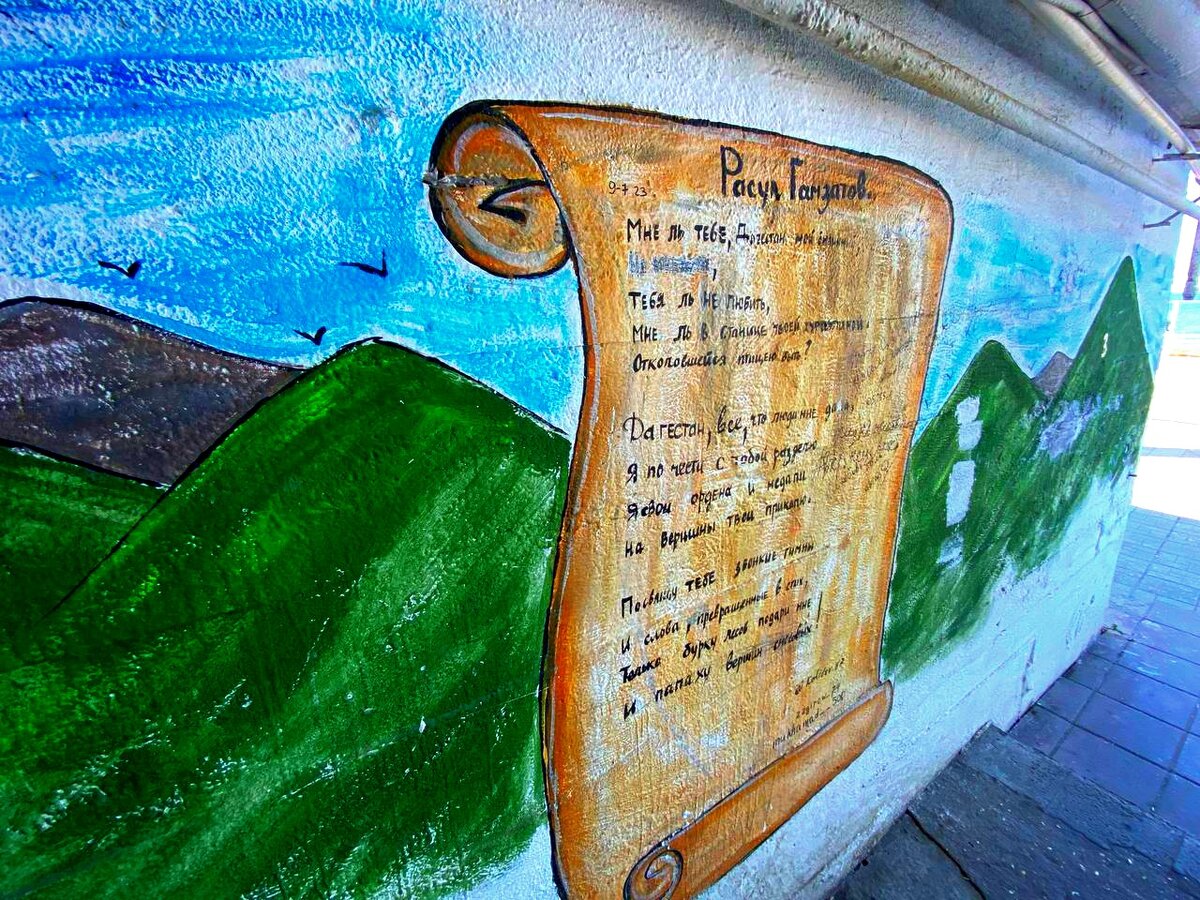 Расул Гамзатов.
9-7 23
Мне ль тебе, Дагестан мой
тебя ль не любить,
Мне ль в станице твоей журавлиной
Отколовшейся птицею быть?
Дагестан, все, что люди мне дали,
Я по чести с тобой разделю
Я свои ордена и медали
на вершины твои приколю.
Посвящу тебе звонкие гимны
И слова, превращенные в стих,
Только бурку лесов подари мне
И папаху вершин снеговых!
3